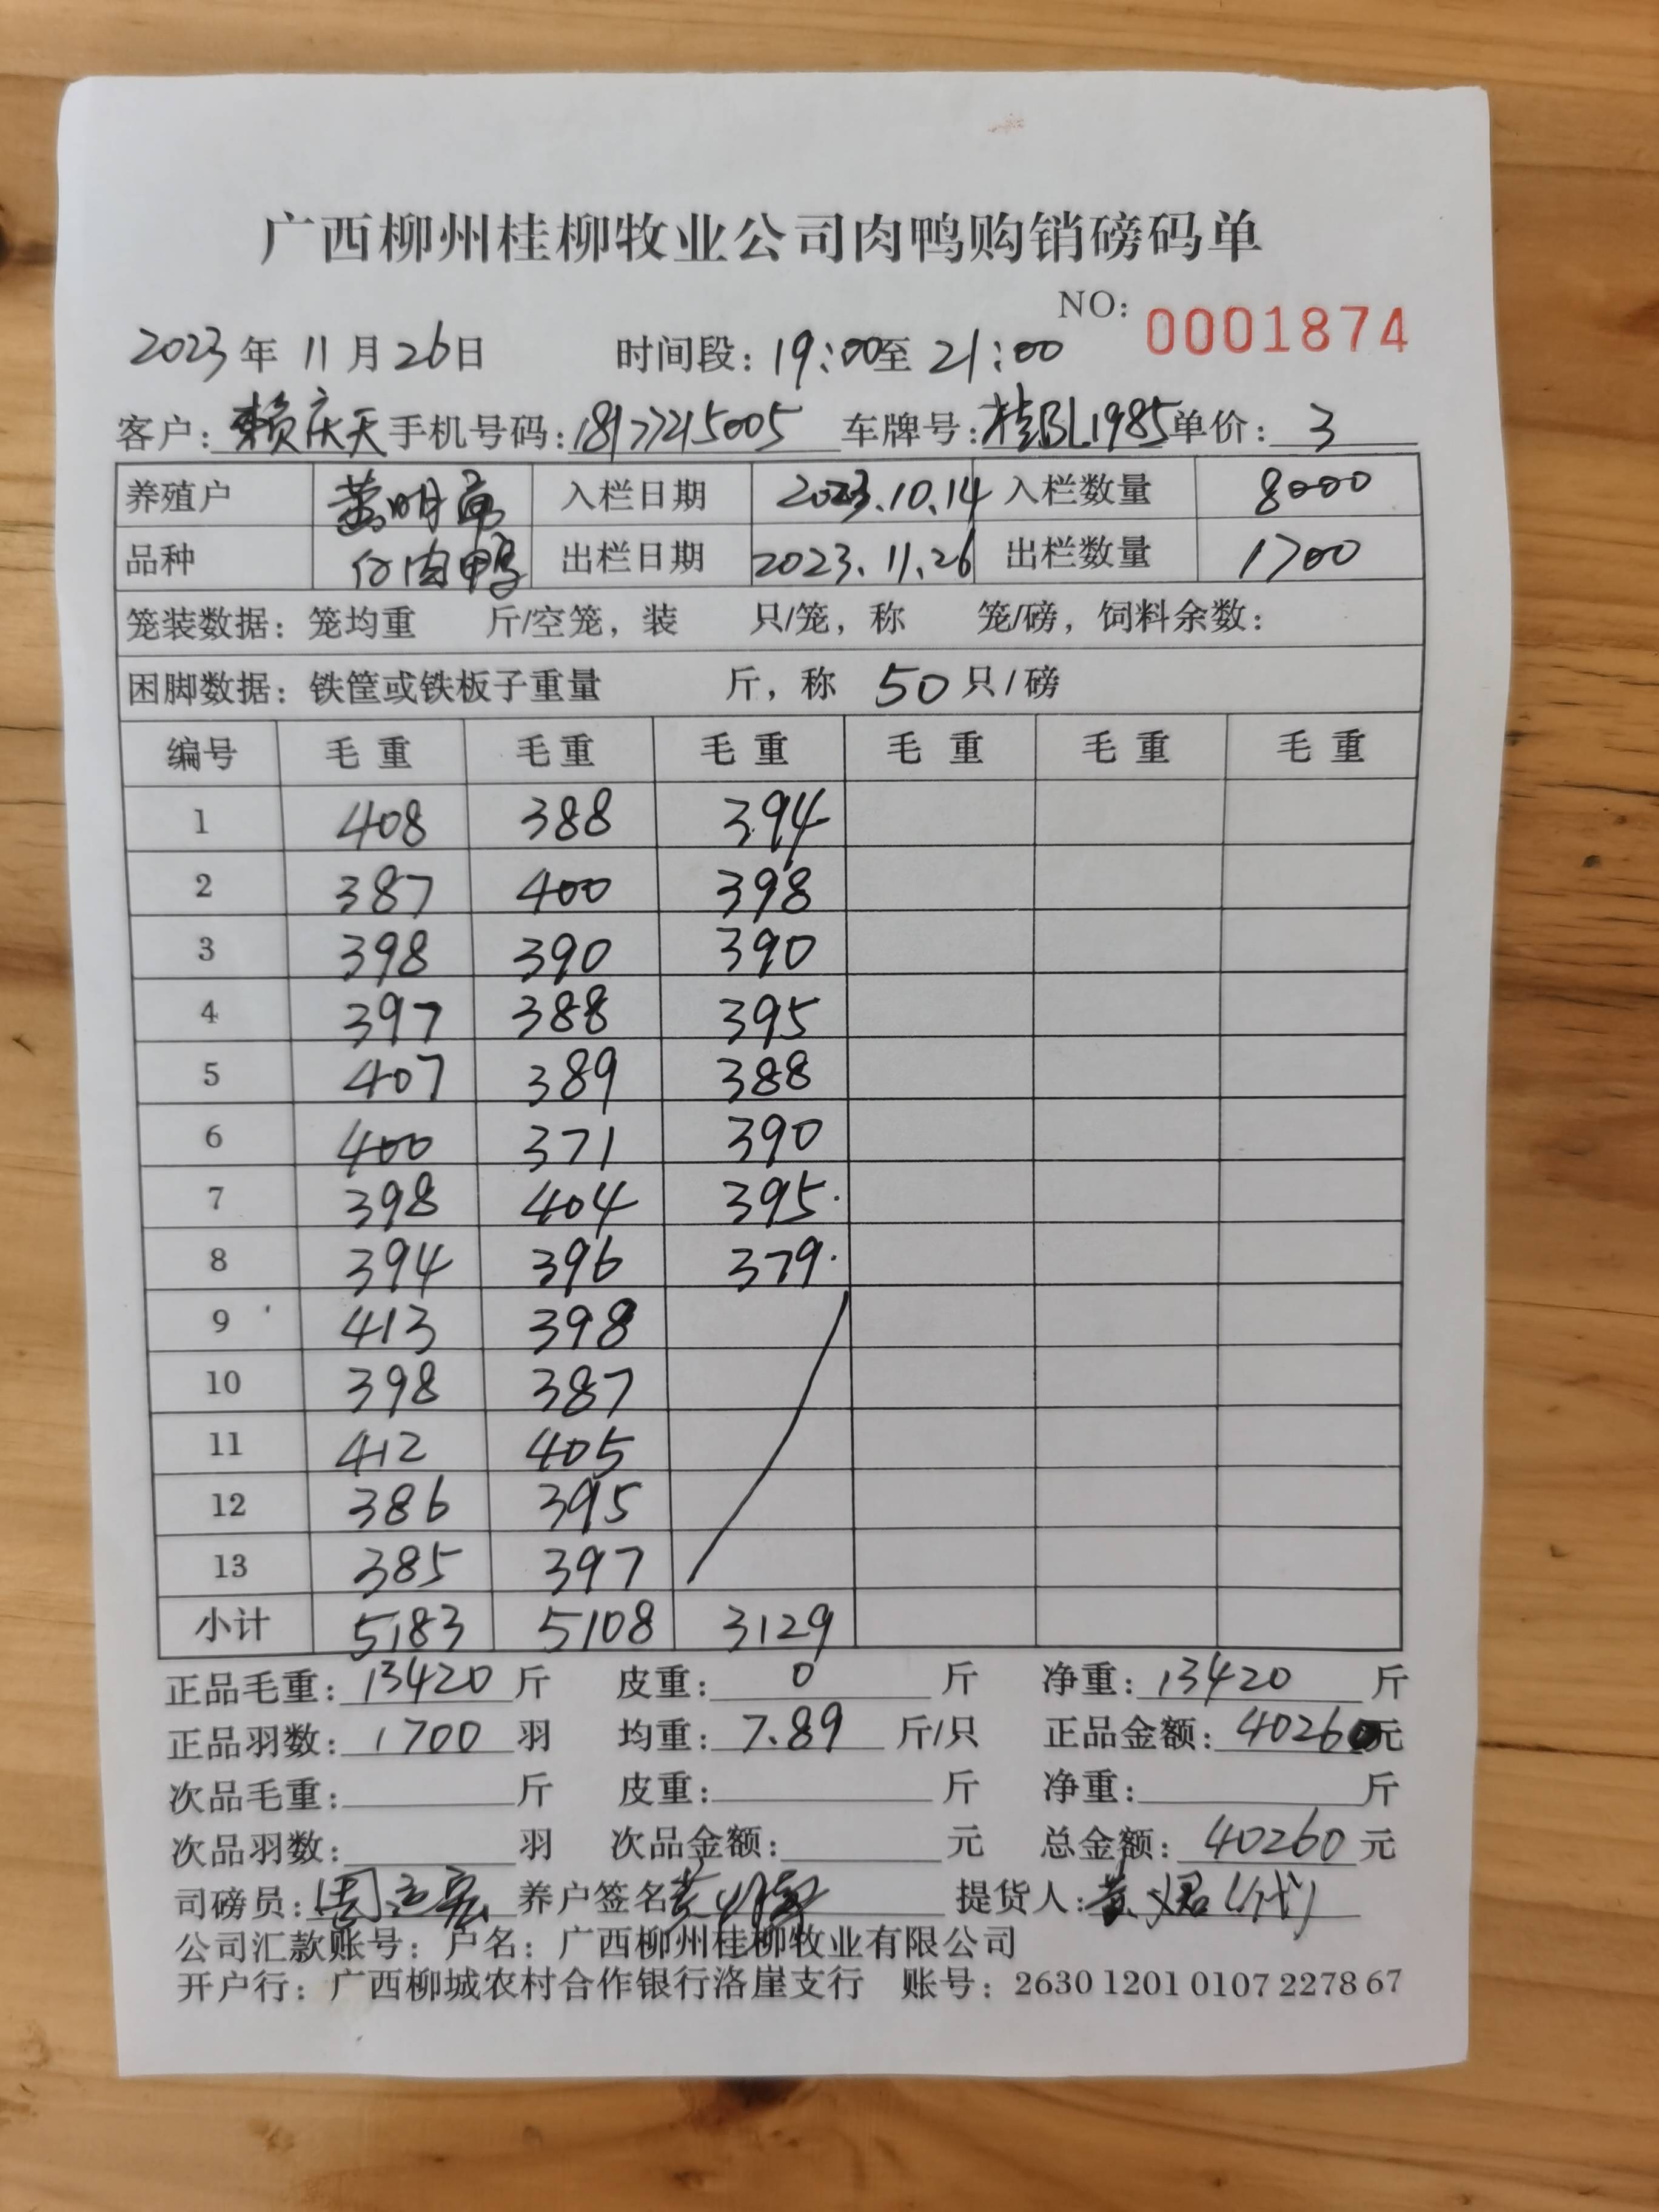 广西柳州桂柳牧业公司肉鸭购销磅码单
NO: 0001874
2023年 11月26日 时间段: 19:00至 21:00
客户: 赖庆天 手机号码: 18177215005 车牌号: 桂BL1985 单价: 3
养殖户 黄明 入栏日期 2023.10.14 入栏数量 8000
品种 肉鸭 出栏日期 2023.11.26 出栏数量 1700
笼装数据: 笼均重 斤/空笼, 装 只/笼, 称 笼/磅, 饲料余数:
困脚数据: 铁筐或铁板子重量 斤, 称 50 只/磅
编号 毛重 毛重 毛重 毛重 毛重 毛重
1 408 388 394
2 387 400 398
3 398 390 390
4 397 388 395
5 407 389 388
6 400 371 390
7 398 404 395.
8 394 396 379.
9 413 398
10 398 387
11 412 405
12 386 395
13 385 397
小计 5183 5108 3129
正品毛重: 13420 斤 皮重: 0 斤 净重: 13420 斤
正品羽数: 1700 羽 均重: 7.89 斤/只 正品金额: 40260元
次品毛重: 斤 皮重: 斤 净重: 斤
次品羽数: 羽 次品金额: 元 总金额: 40260 元
司磅员: 养户签名 提货人: 黄 (代)
公司汇款账号: 户名: 广西柳州桂柳牧业有限公司
开户行: 广西柳城农村合作银行洛崖支行 账号: 2630 1201 0107 2278 67